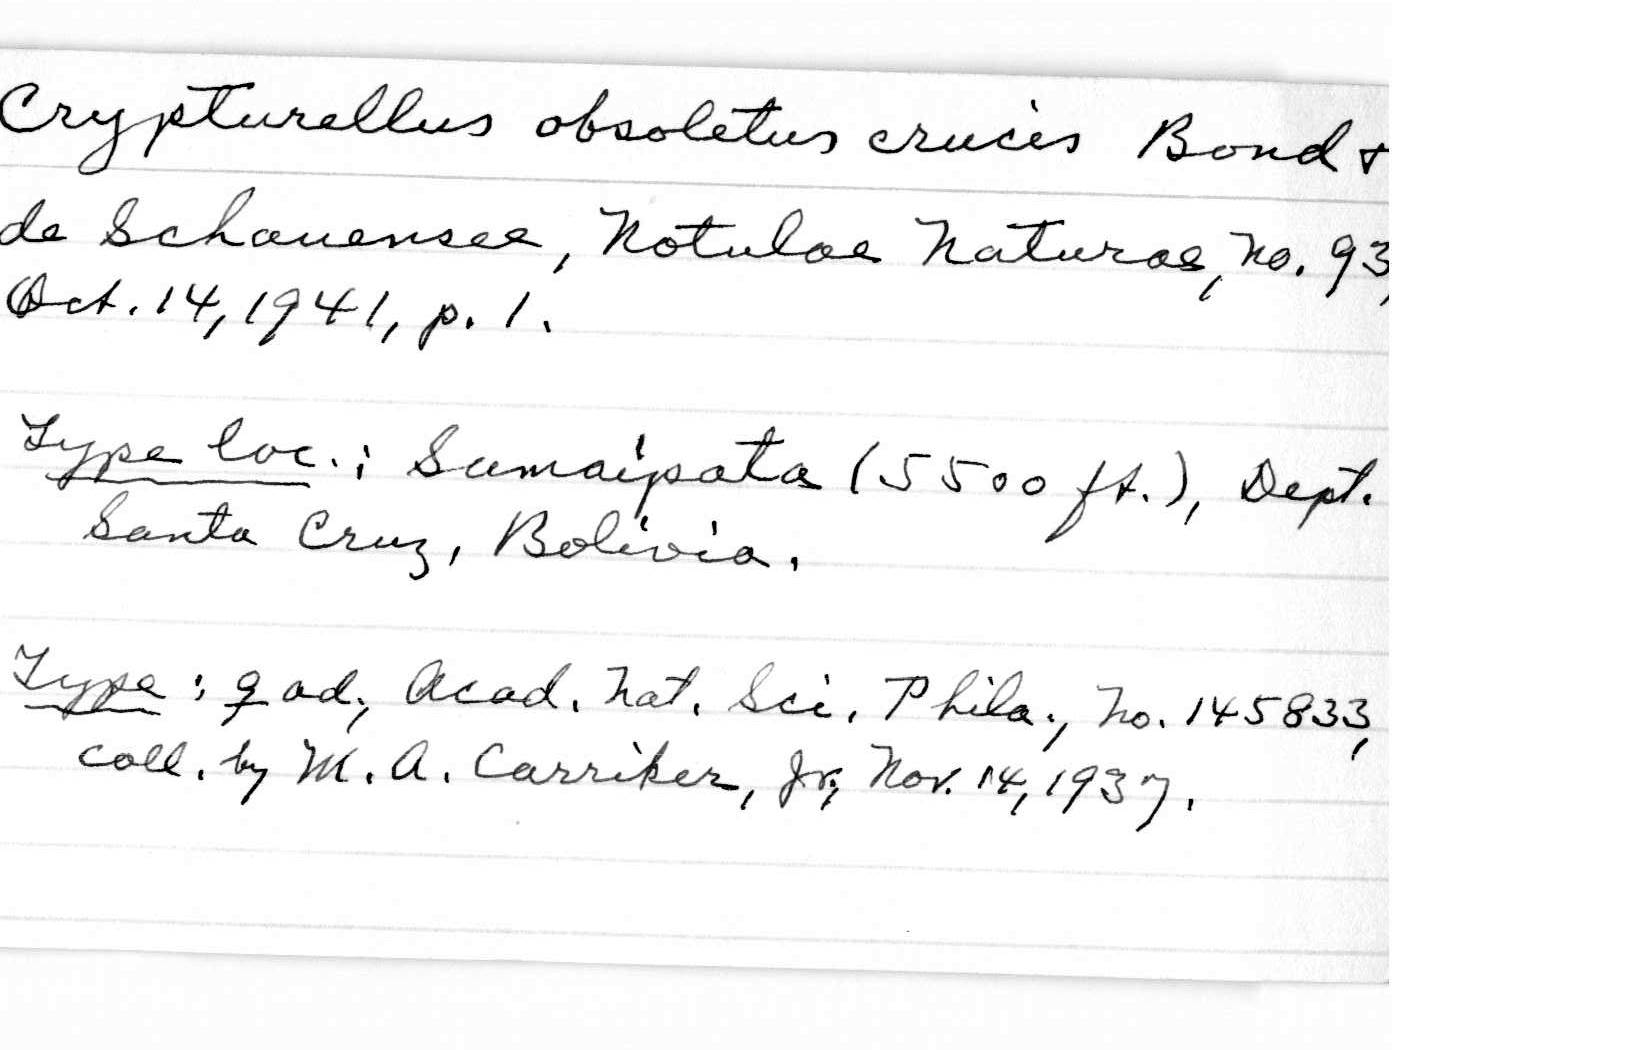 Crypturellus obsoletus crucis Bond +
de Schauensee, Notulae Naturae, No. 93,
Oct. 14, 1941, p. 1.
Type loc.: Samaipata (5500 ft.), Dept.
Santa Cruz, Bolivia.
Type: ♀ ad., Acad. Nat. Sci. Phila., No. 145833,
coll. by M. A. Carriker, Jr., Nov. 14, 1937.